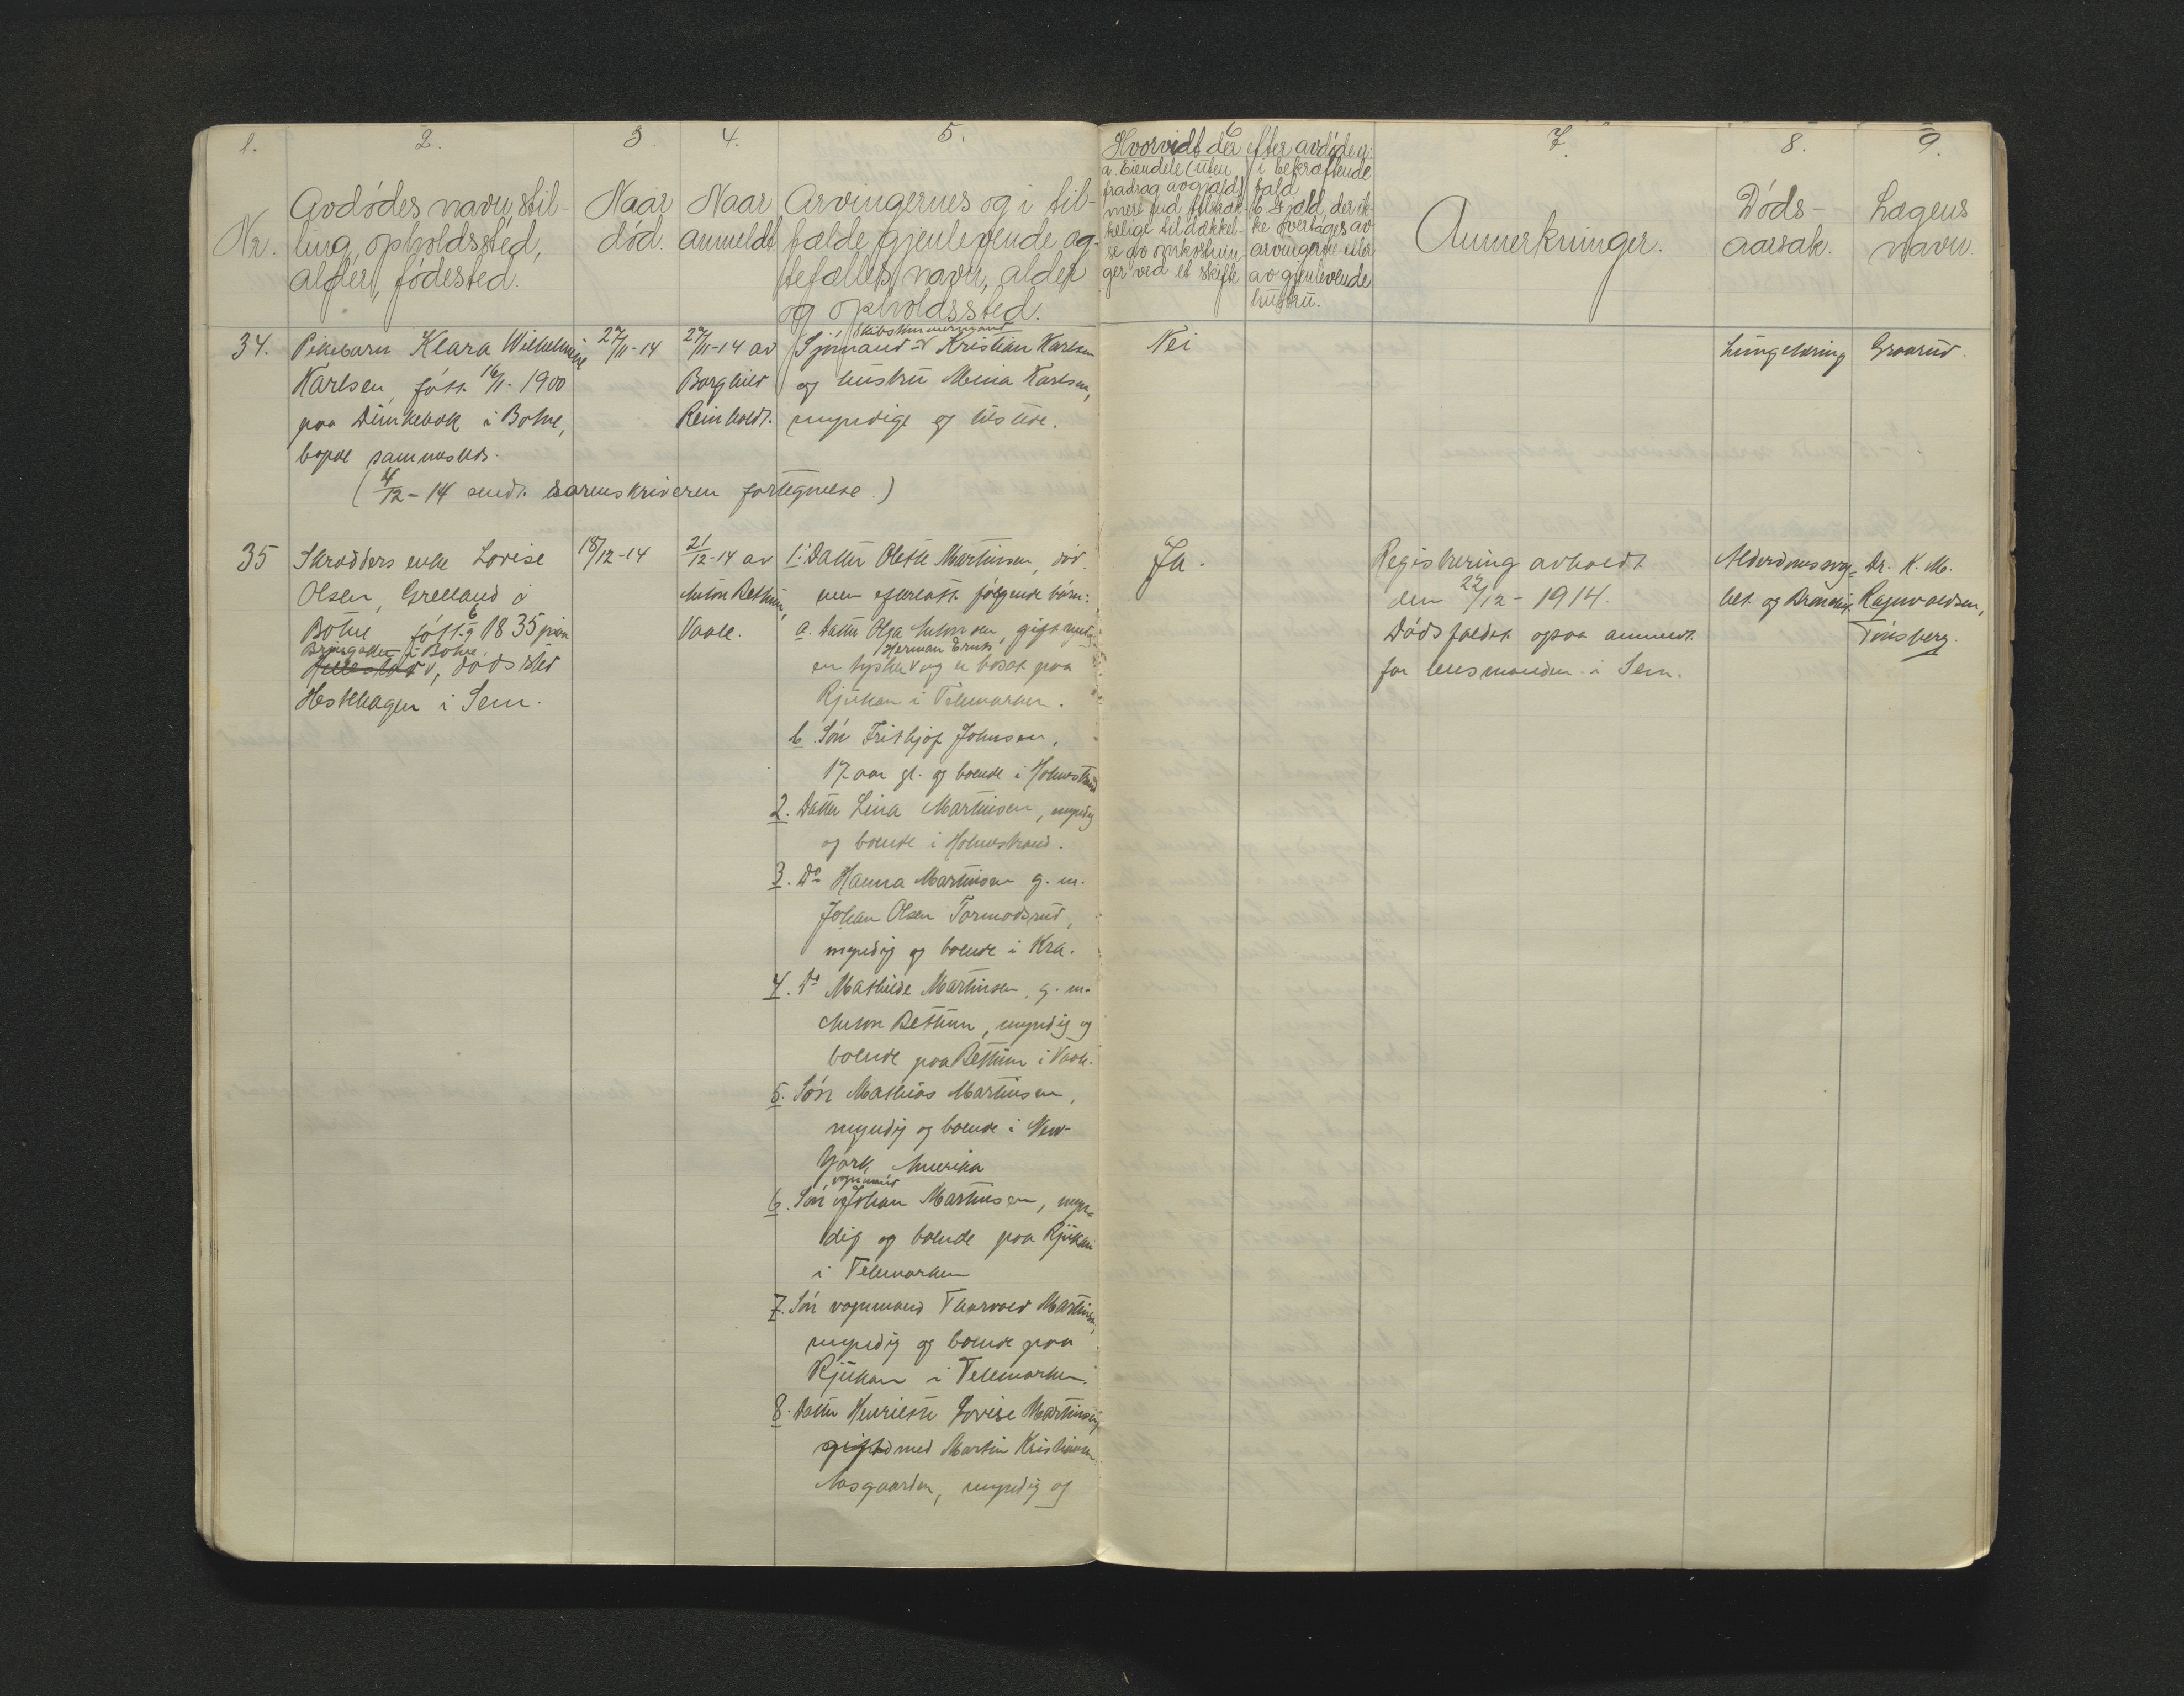 1. 2. 3. 4. 5. 6 7. 8. 9.
Nr.
Avdødes navn, stil-
ling, opholdssted,
alder, fødested.
Naar
død.
Naar
anmeldt.
Arvingernes og i til-
fælde gjenlevende æg-
tefælles navn, alder
og opholdssted.
Hvorvidt der efter avdøde er:
a. Eiendele (uten
fradrag av gjæld)
mere end tilstræk-
kelige til dækkel-
se av omkostnin-
ger ved et skifte
i bekræftende
fald
b. Gjæld, der ik-
ke overtages av
arvingerne eller
av gjenlevende
hustru.
Anmerkninger.
Døds-
aarsak.
Lægens
navn.
34.
Pikebarn Klara Wilhelmine
Karlsen, født 16/1- 1900
paa i Botne,
bopæl sammesteds.
27/11-14
27/11-14 av
Borghild
Reinholdt.
Skibstømmermand
Sjømand Kristian Karlsen
og hustru Mina Karlsen,
myndige og tilstede.
Nei
Lungetæring
Graarud.
(4/12-14 sendt sorenskriveren fortegnelse.)
35
Skrædders enke Lovise
Olsen, Grelland i
Botne født 6/9 1835 paa
i Botne
dødssted
Hesthagen i Sem.
18/12-14
21/12-14 av
Anton Bettum,
Vaale.
1. Datter Olette Martinsen, død
men efterlatt følgende børn:
a. Datter Olga Antonsen, gift med
Herman Ernst
en tysker og er bosat paa
Rjukan i Telemarken.
b. Søn Frithjof Johnsen,
17 aar gl. og boende i Holmestrand
2. Datter Lina Martinsen, myndig
og boende i Holmestrand.
3. Do Hanna Martinsen g. m.
Johan Olsen Tormodsrud,
myndig og boende i Kra.
4. Do Mathilde Martinsen, g. m.
Anton Bettum, myndig og
boende paa Bettum i Vaale.
5. Søn Mathias Martinsen,
myndig og boende i New-
York Amerika
vognmand
6. Søn Johan Martinsen, myn=
dig og boende paa Rjukan
i Telemarken
7. Søn vognmand Thorvald Martinsen,
myndig og boende paa
Rjukan i Telemarken.
8. Datter Henriette Lovise Martinsen,
gift med Martin Kristiansen
Aasgaarden, myndig og
Ja.
Registrering avholdt
den 22/12- 1914.
Dødsfaldet ogsaa anmeldt
for lensmanden i Sem.
Alderdomssvag=
het og
Dr. K. M.
Ragnvaldsen,
Tønsberg.